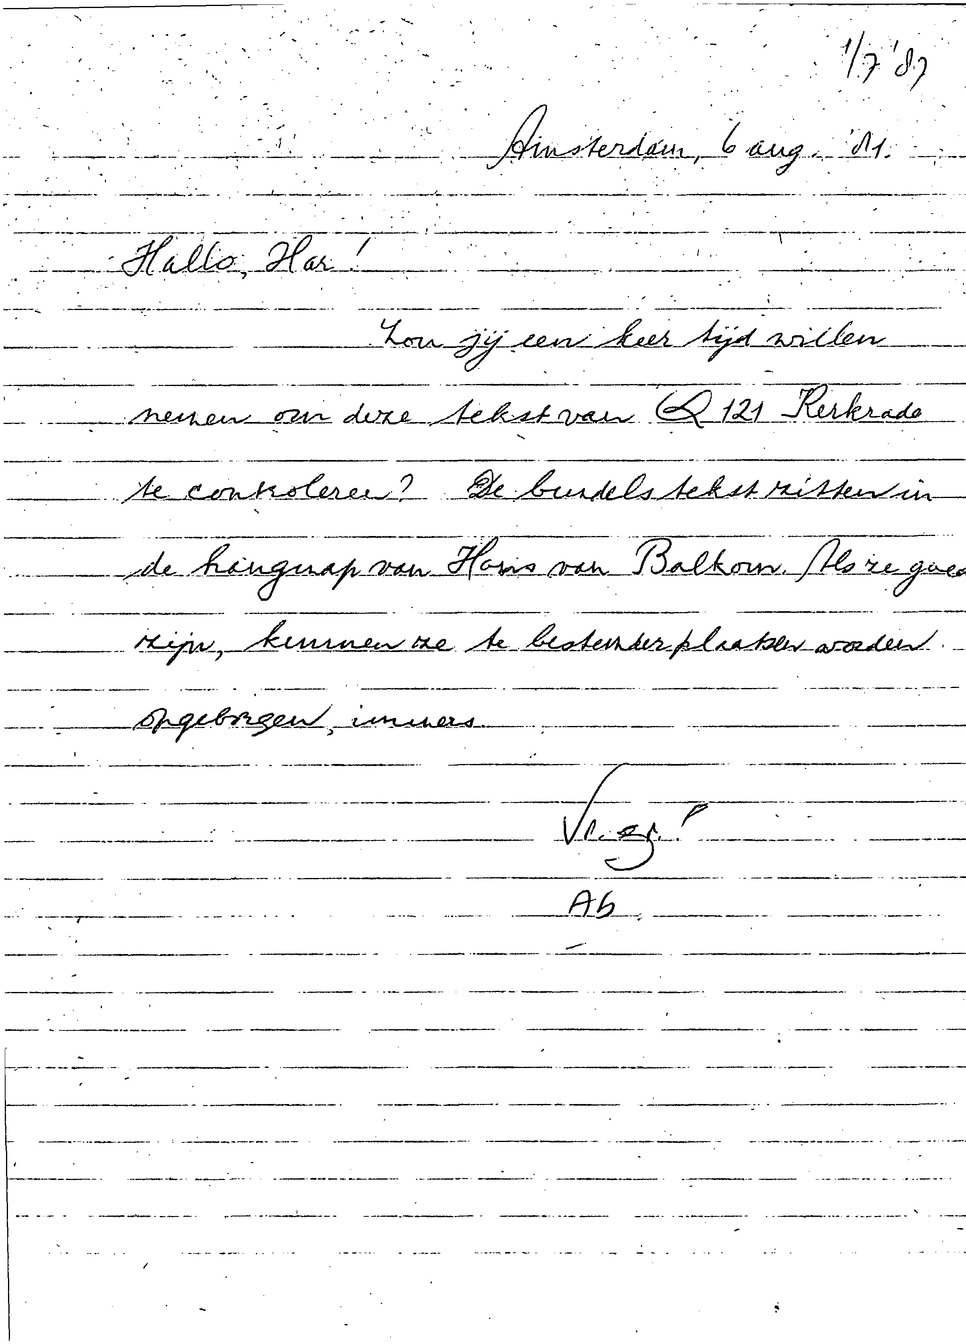 1/7 '87
Amsterdam, 6 aug. '81.
Hallo, Har!
Zou jij een keer tijd willen
nemen om deze tekst van Q 121 Kerkrade
te controleren? De bundels tekst zitten in
de hangmap van Hans van Balkom. Als ze goed
zijn, kunnen ze te bestemder plaatse worden
opgeborgen, immers.
Vr. gr.!
Ab